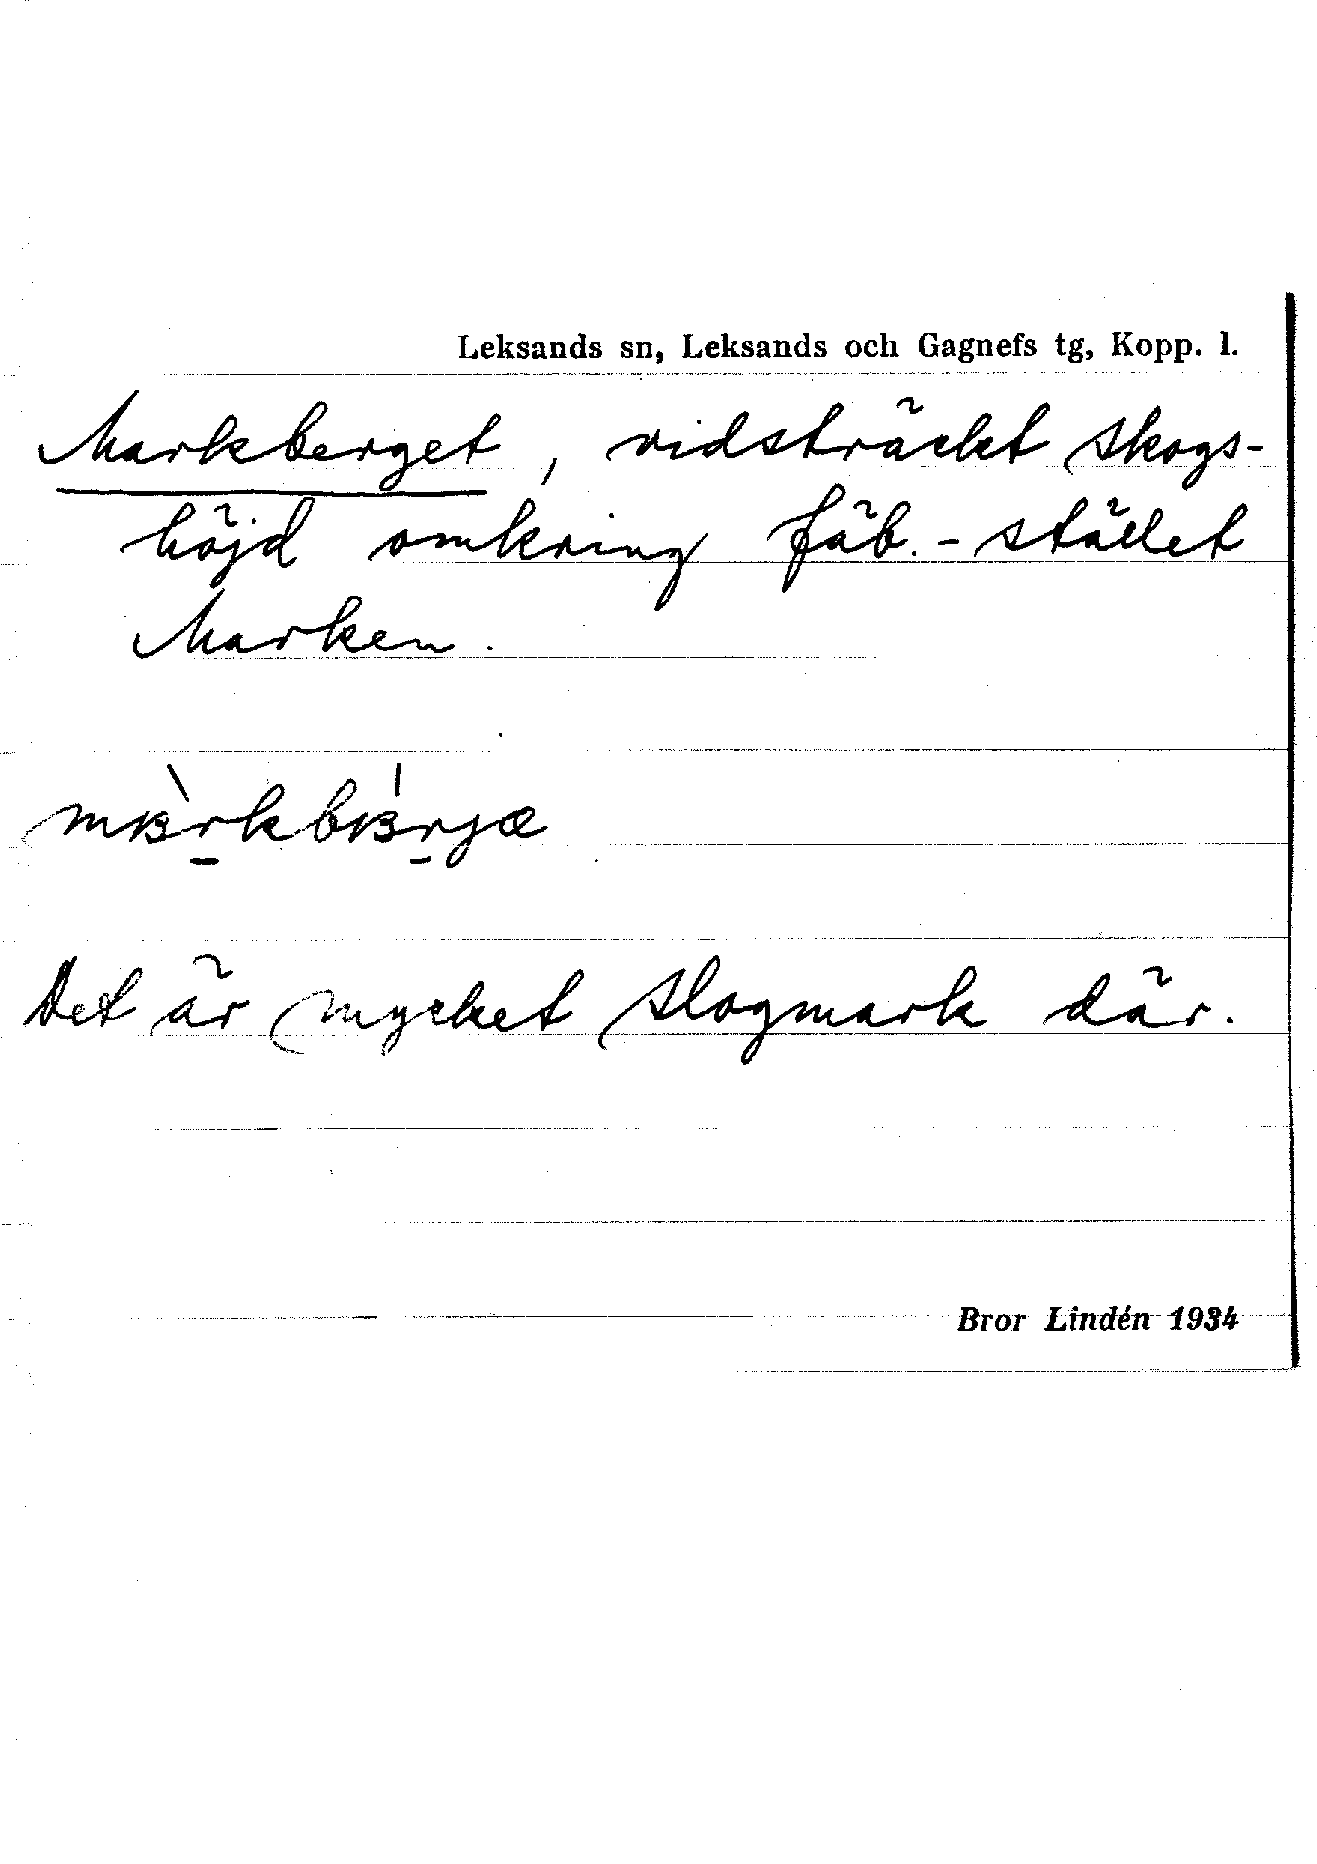 Leksands sn, Leksands och Gagnefs tg, Kopp. l.
Markberget, vidsträckt skogs-
höjd omkring fäb.-stället
Marken.
Det är mycket slogmark där.
Bror Lindén 1934